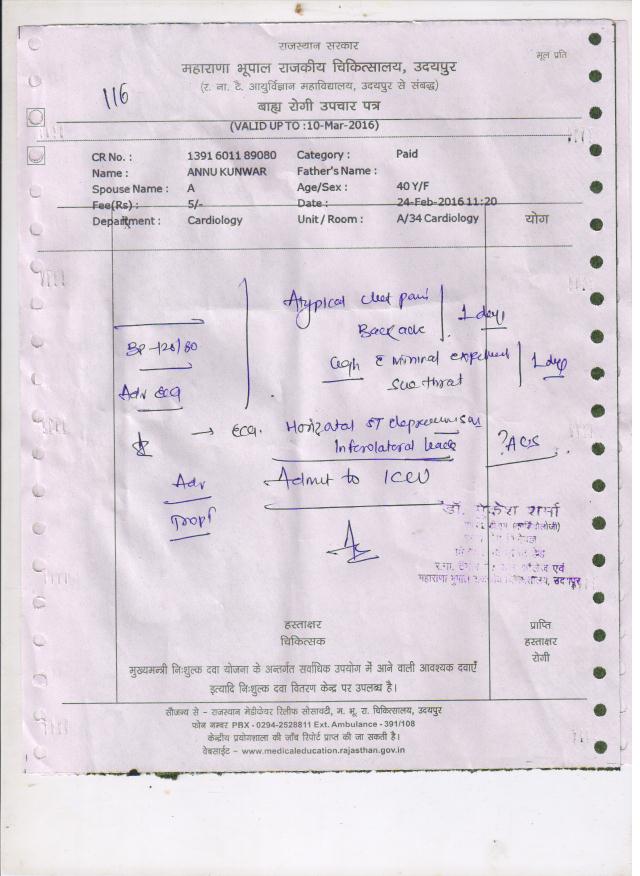 राजस्थान सरकार
मूल प्रति
महाराणा भूपाल राजकीय चिकित्सालय, उदयपुर
(र. ना. टै. आयुर्विज्ञान महाविद्यालय, उदयपुर से संबद्ध)
116
बाह्य रोगी उपचार पत्र
(VALID UP TO :10-Mar-2016)
CR No. : 1391 6011 89080 Category : Paid
Name : ANNU KUNWAR Father's Name :
Spouse Name : A Age/Sex : 40 Y/F
Fee(Rs) : 5/- Date : 24-Feb-2016 11:20
Department : Cardiology Unit / Room : A/34 Cardiology योग
Atypical chest pain
Back ache 1 day
BP - 128/80
Cough
1 day
Adv ECG
throat
→ ECG. Horizontal ST depression
Inferolateral leads
? ACS
Adv Admit to ICCU
TropT
डॉ.
शर्मा
महाराणा
उदयपुर
हस्ताक्षर
चिकित्सक
प्राप्ति
हस्ताक्षर
रोगी
मुख्यमन्त्री निःशुल्क दवा योजना के अन्तर्गत सर्वाधिक उपयोग में आने वाली आवश्यक दवाएँ
इत्यादि निःशुल्क दवा वितरण केन्द्र पर उपलब्ध है।
सौजन्य से - राजस्थान मेडीकेयर रिलीफ सोसायटी, म. भू. रा. चिकित्सालय, उदयपुर
फोन नम्बर PBX - 0294-2528811 Ext. Ambulance - 391/108
केन्द्रीय प्रयोगशाला की जाँच रिपोर्ट प्राप्त की जा सकती है।
वेबसाईट - www.medicaleducation.rajasthan.gov.in